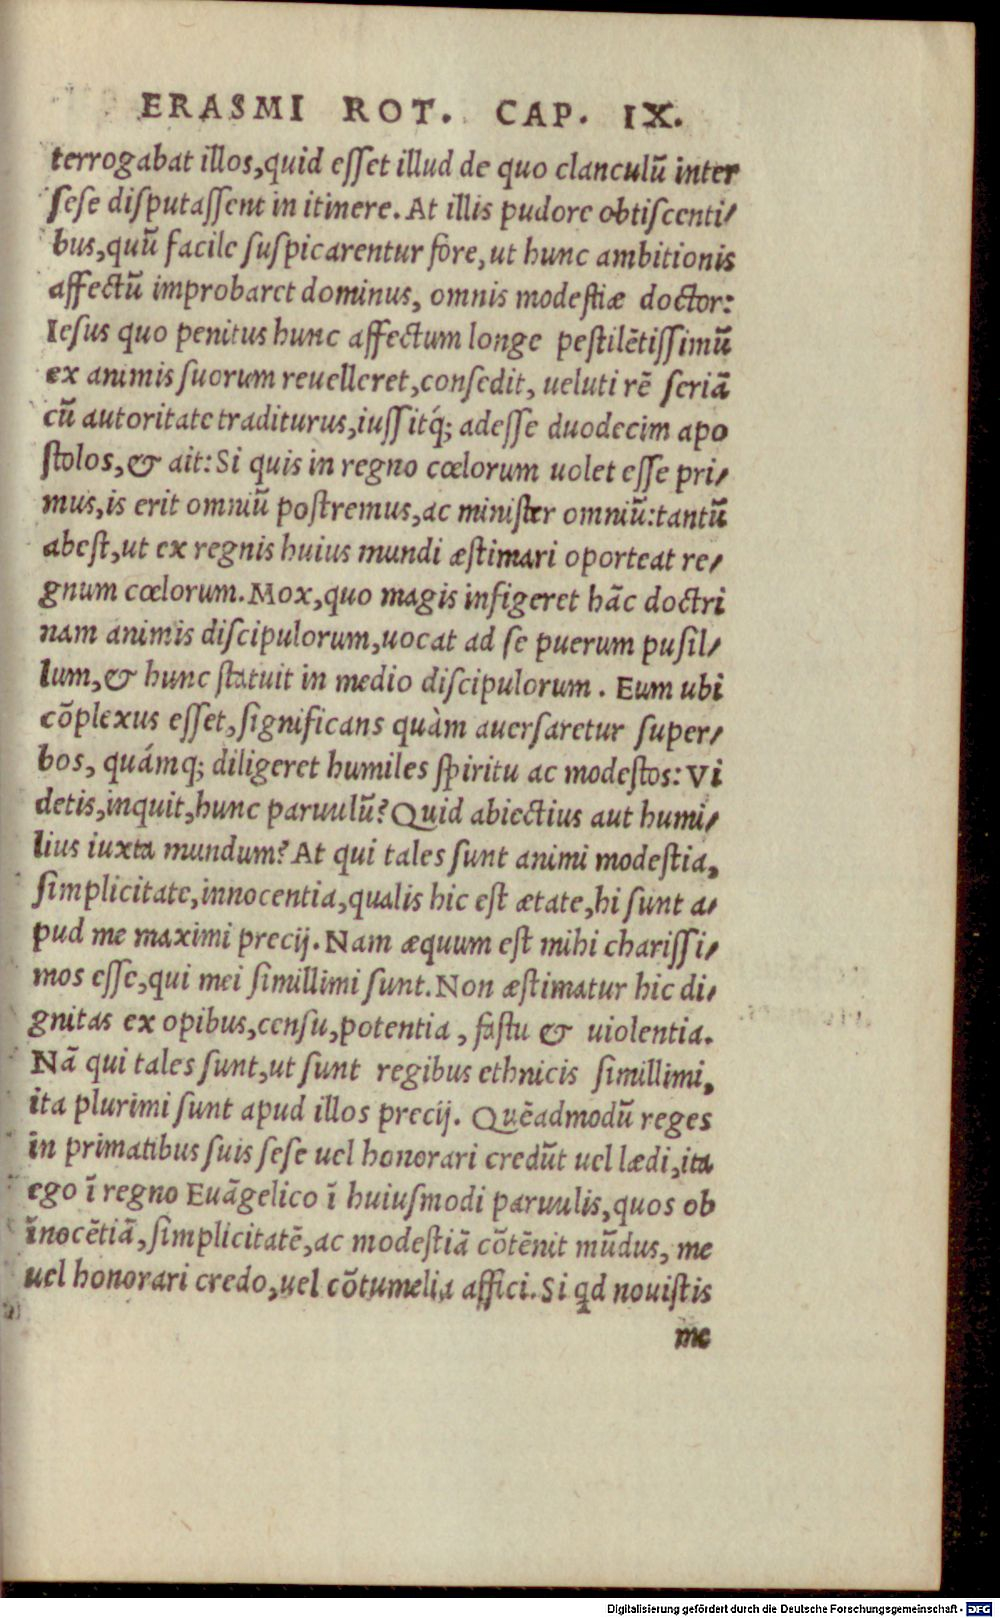 ERASMI ROT. CAP. IX.
terrogabat illos, quid eſſet illud de quo clanculũ inter
ſeſe diſputaſſent in itinere. At illis pudore obtiſcenti/
bus, quũ facile ſuſpicarentur fore, ut hunc ambitionis
affectũ improbaret dominus, omnis modeſtiæ doctor:
Ieſus quo penitus hunc affectum longe peſtilẽtiſſimũ
ex animis ſuorum reuelleret, conſedit, ueluti rẽ ſeriã
cũ autoritate traditurus, iuſſitq́; adeſſe duodecim apo
ſtolos, & ait: Si quis in regno cœlorum uolet eſſe pri/
mus, is erit omniũ poſtremus, ac miniſter omniũ: tantũ
abeſt, ut ex regnis huius mundi æſtimari oporteat re/
gnum cœlorum. Mox, quo magis infigeret hãc doctri
nam animis diſcipulorum, uocat ad ſe puerum puſil/
lum, & hunc ſtatuit in medio diſcipulorum. Eum ubi
cõplexus eſſet, ſignificans quàm auerſaretur ſuper/
bos, quámq; diligeret humiles ſpiritu ac modeſtos: Vi
detis, inquit, hunc paruulũ? Quid abiectius aut humi/
lius iuxta mundum? At qui tales ſunt animi modeſtia,
ſimplicitate, innocentia, qualis hic eſt ætate, hi ſunt a/
pud me maximi precij. Nam æquum eſt mihi chariſſi/
mos eſſe, qui mei ſimillimi ſunt. Non æſtimatur hic di/
gnitas ex opibus, cenſu, potentia, faſtu & uiolentia.
Nã qui tales ſunt, ut ſunt regibus ethnicis ſimillimi,
ita plurimi ſunt apud illos precij. Quẽadmodũ reges
in primatibus ſuis ſeſe uel honorari credũt uel lædi, ita
ego ĩ regno Euãgelico ĩ huiuſmodi paruulis, quos ob
ĩnocẽtiã, ſimplicitatẽ, ac modeſtiã cõtẽnit mũdus, me
uel honorari credo, uel cõtumelia affici. Si qd nouiſtis
me
Digitalisierung gefördert durch die Deutsche Forschungsgemeinschaft - DFG